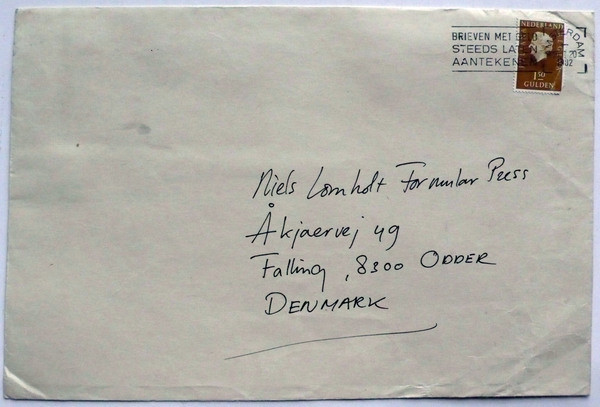 NEDERLAND
BRIEVEN MET GELD
STEEDS LATEN
AANTEKENEN
RDAM
1.50
GULDEN
Niels Lomholt Formular Press
Åkjaervej 49
Falling, 8300 ODDER
DENMARK